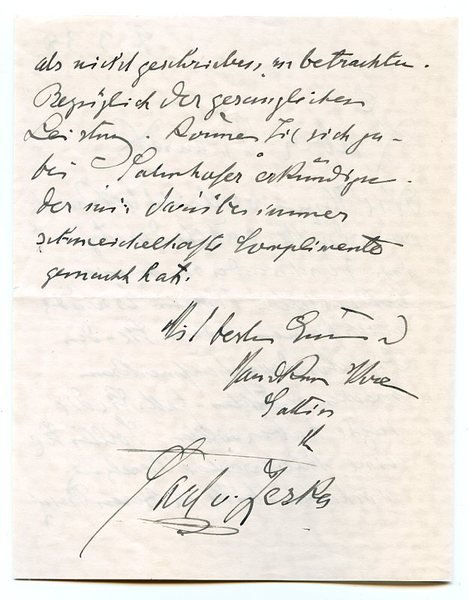 als nicht geschrieben, zu betrachten.
Bezüglich der gesanglichen
Leistung. können Sie sich ja
bei erkundigen
der mir darüber immer
schmeichelhafte Complimente
gemacht hat.
Mit besten
Handkuss Ihre
Gattin
Ihr
Carl v. Zeska